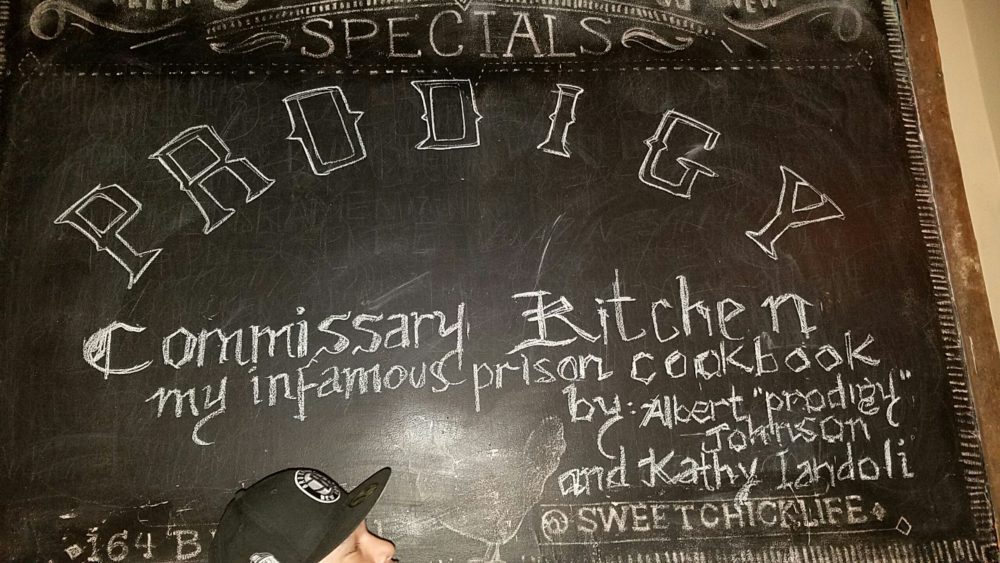 SPECIALS
PRODIGY
Commissary Kitchen
my infamous prison cookbook
by: Albert "prodigy"
Johnson
and Kathy Iandoli
@SWEETCHICKLIFE
164 B